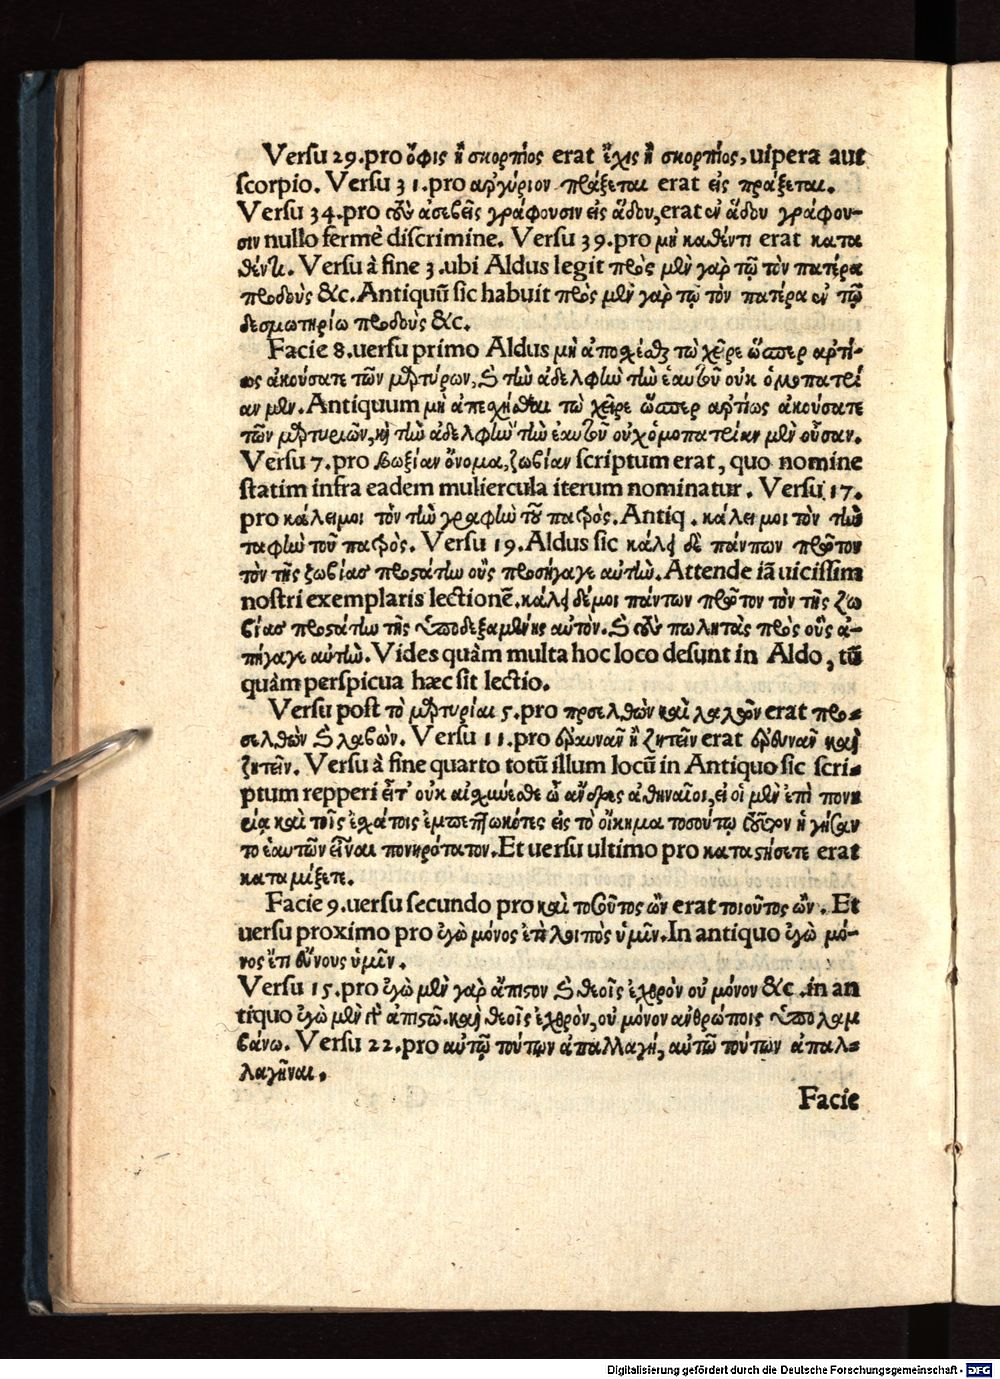 Versu 29. pro ὄφις ἢ σκορπίος erat ἔχις ἢ σκορπίος, uipera aut
scorpio. Versu 31. pro ἀργύριον πράξεται erat εἰς πράξεται.
Versu 34. pro οὓς ἀσεβεῖς γράφουσιν εἰς ᾅδου, erat ἐν ᾅδου γράφου-
σιν nullo fermè discrimine. Versu 39. pro μὴ καθέντι erat κατα
θέντι. Versu à fine 3. ubi Aldus legit πρὸς μὲν γὰρ τῷ τὸν πατέρα
προδοὺς &c. Antiquū sic habuit πρὸς μὲν γὰρ τῷ τὸν πατέρα ἐν τῷ
δεσμωτηρίω προδοὺς &c.
Facie 8. uersu primo Aldus μὴ ἀποχέσθαι τὼ χεῖρε ὥσπερ ἀρτί-
ως ἀκούσατε τῶν μαρτύρων, καὶ τὴν ἀδελφὴν τὴν ἑαυτοῦ οὐκ ὁμοπατρί
αν μὲν. Antiquum μὴ ἀπεχῆσθαι τὼ χεῖρε ὥσπερ ἀρτίως ἀκούσατε
τῶν μαρτυριῶν, καὶ τὴν ἀδελφὴν τὴν ἑαυτοῦ οὐχ ὁμοπατρίαν μὲν οὖσαν.
Versu 7. pro βωξίαν ὄνομα, ζωβίαν scriptum erat, quo nomine
statim infra eadem muliercula iterum nominatur. Versu 17.
pro κάλει μοι τὸν τὴν γραφὴν τοῦ πατρός. Antiq. κάλει μοι τὸν τὴν
ταφὴν τοῦ πατρός. Versu 19. Aldus sic κάλει δὲ πάντων πρῶτον
τὸν τῆς ζωβίας προστάτην οὓς προσήγαγε αὐτὴν. Attende iā uicissim
nostri exemplaris lectionē. κάλει δέ μοι πάντων πρῶτον τὸν τῆς ζω
βίας προστάτην τῆς ὑποδεξαμένης αὐτὸν. καὶ τοὺς πωλητὰς πρὸς οὓς ἀ-
πήγαγε αὐτὴν. Vides quàm multa hoc loco desunt in Aldo, tū
quàm perspicua hæc sit lectio.
Versu post τὸ μαρτυρίαι 5. pro προσελθὼν καὶ λαλῶν erat προ-
σελθὼν καὶ λαβών. Versu 11. pro ἐραυνᾶν ἢ ζητεῖν erat ἐρευνᾶν καὶ
ζητεῖν. Versu à fine quarto totū illum locū in Antiquo sic scri-
ptum repperi εἶτ' οὐκ αἰσχύεσθε ὦ ἄνδρες ἀθηναῖοι, εἰ οἱ μὲν ἐπὶ πονη
ρίᾳ καὶ τοῖς ἐσχάτοις ἐμπεπτωκότες εἰς τὸ οἴκημα τοσούτῳ τοῦτον ἡγήσαν
το ἑαυτῶν εἶναι πονηρότατον. Et uersu ultimo pro καταστήσετε erat
καταμίξετε.
Facie 9. uersu secundo pro καὶ τοσοῦτος ὢν erat τοιοῦτος ὢν. Et
uersu proximo pro ἐγὼ μόνος ἐπὶ λοιπὸς ὑμῖν. In antiquo ἐγὼ μό-
νος ἔτι εὔνους ὑμῖν.
Versu 15. pro ἐγὼ μὲν γὰρ ἄπιστον καὶ θεοῖς ἐχθρὸν οὐ μόνον &c. in an
tiquo ἐγὼ μὲν γὰρ ἀπιστῶ. καὶ θεοῖς ἐχθρὸν, οὐ μόνον ἀνθρώποις ὑπολαμ
βάνω. Versu 22. pro αὐτῷ τούτων ἀπαλλαγή, αὐτῶ τούτων ἀπαλ-
λαγῆναι.
Facie
Digitalisierung gefördert durch die Deutsche Forschungsgemeinschaft - DFG